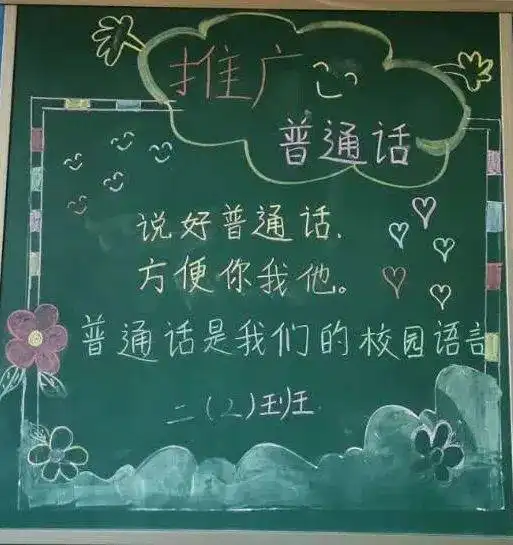 推广
普通话
说好普通话,
方便你我他。
普通话是我们的校园语言
二(2)班